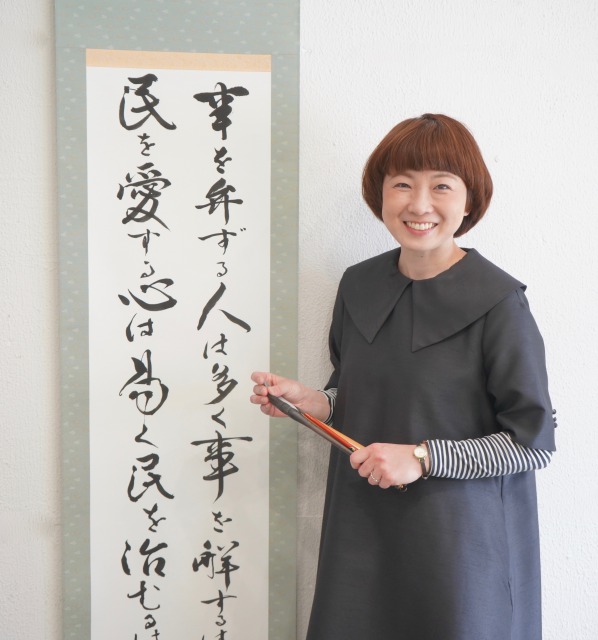 事を弁ずる人は多く事を解するは
民を愛する心は易く民を治むるは